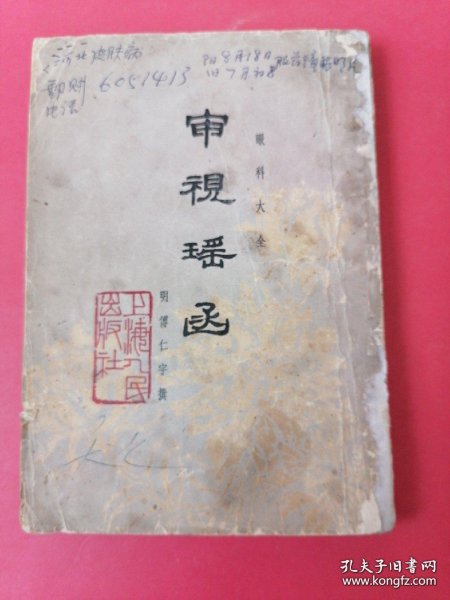 河北皮肤病
6051413
阳8月18日
旧7月初8
电话
眼科大全
审视瑶函
明傅仁宇撰
上海人民
出版社
孔夫子旧书网
www.kongfz.com